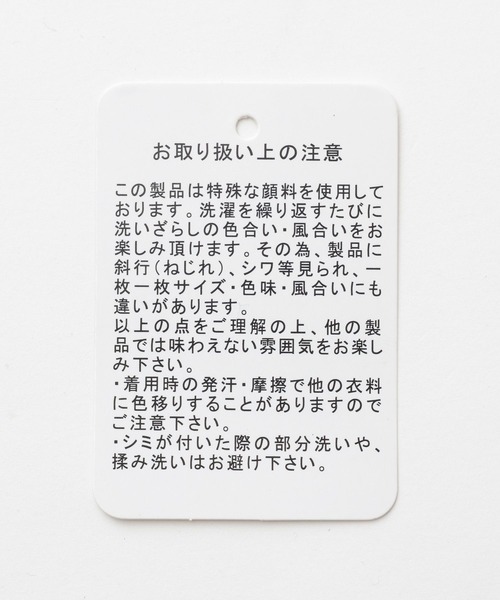 お取り扱い上の注意
この製品は特殊な顔料を使用して
おります。洗濯を繰り返すたびに
洗いざらしの色合い・風合いをお
楽しみ頂けます。その為、製品に
斜行(ねじれ)、シワ等見られ、一
枚一枚サイズ・色味・風合いにも
違いがあります。
以上の点をご理解の上、他の製
品では味わえない雰囲気をお楽し
み下さい。
・着用時の発汗・摩擦で他の衣料
に色移りすることがありますので
ご注意下さい。
・シミが付いた際の部分洗いや、
揉み洗いはお避け下さい。